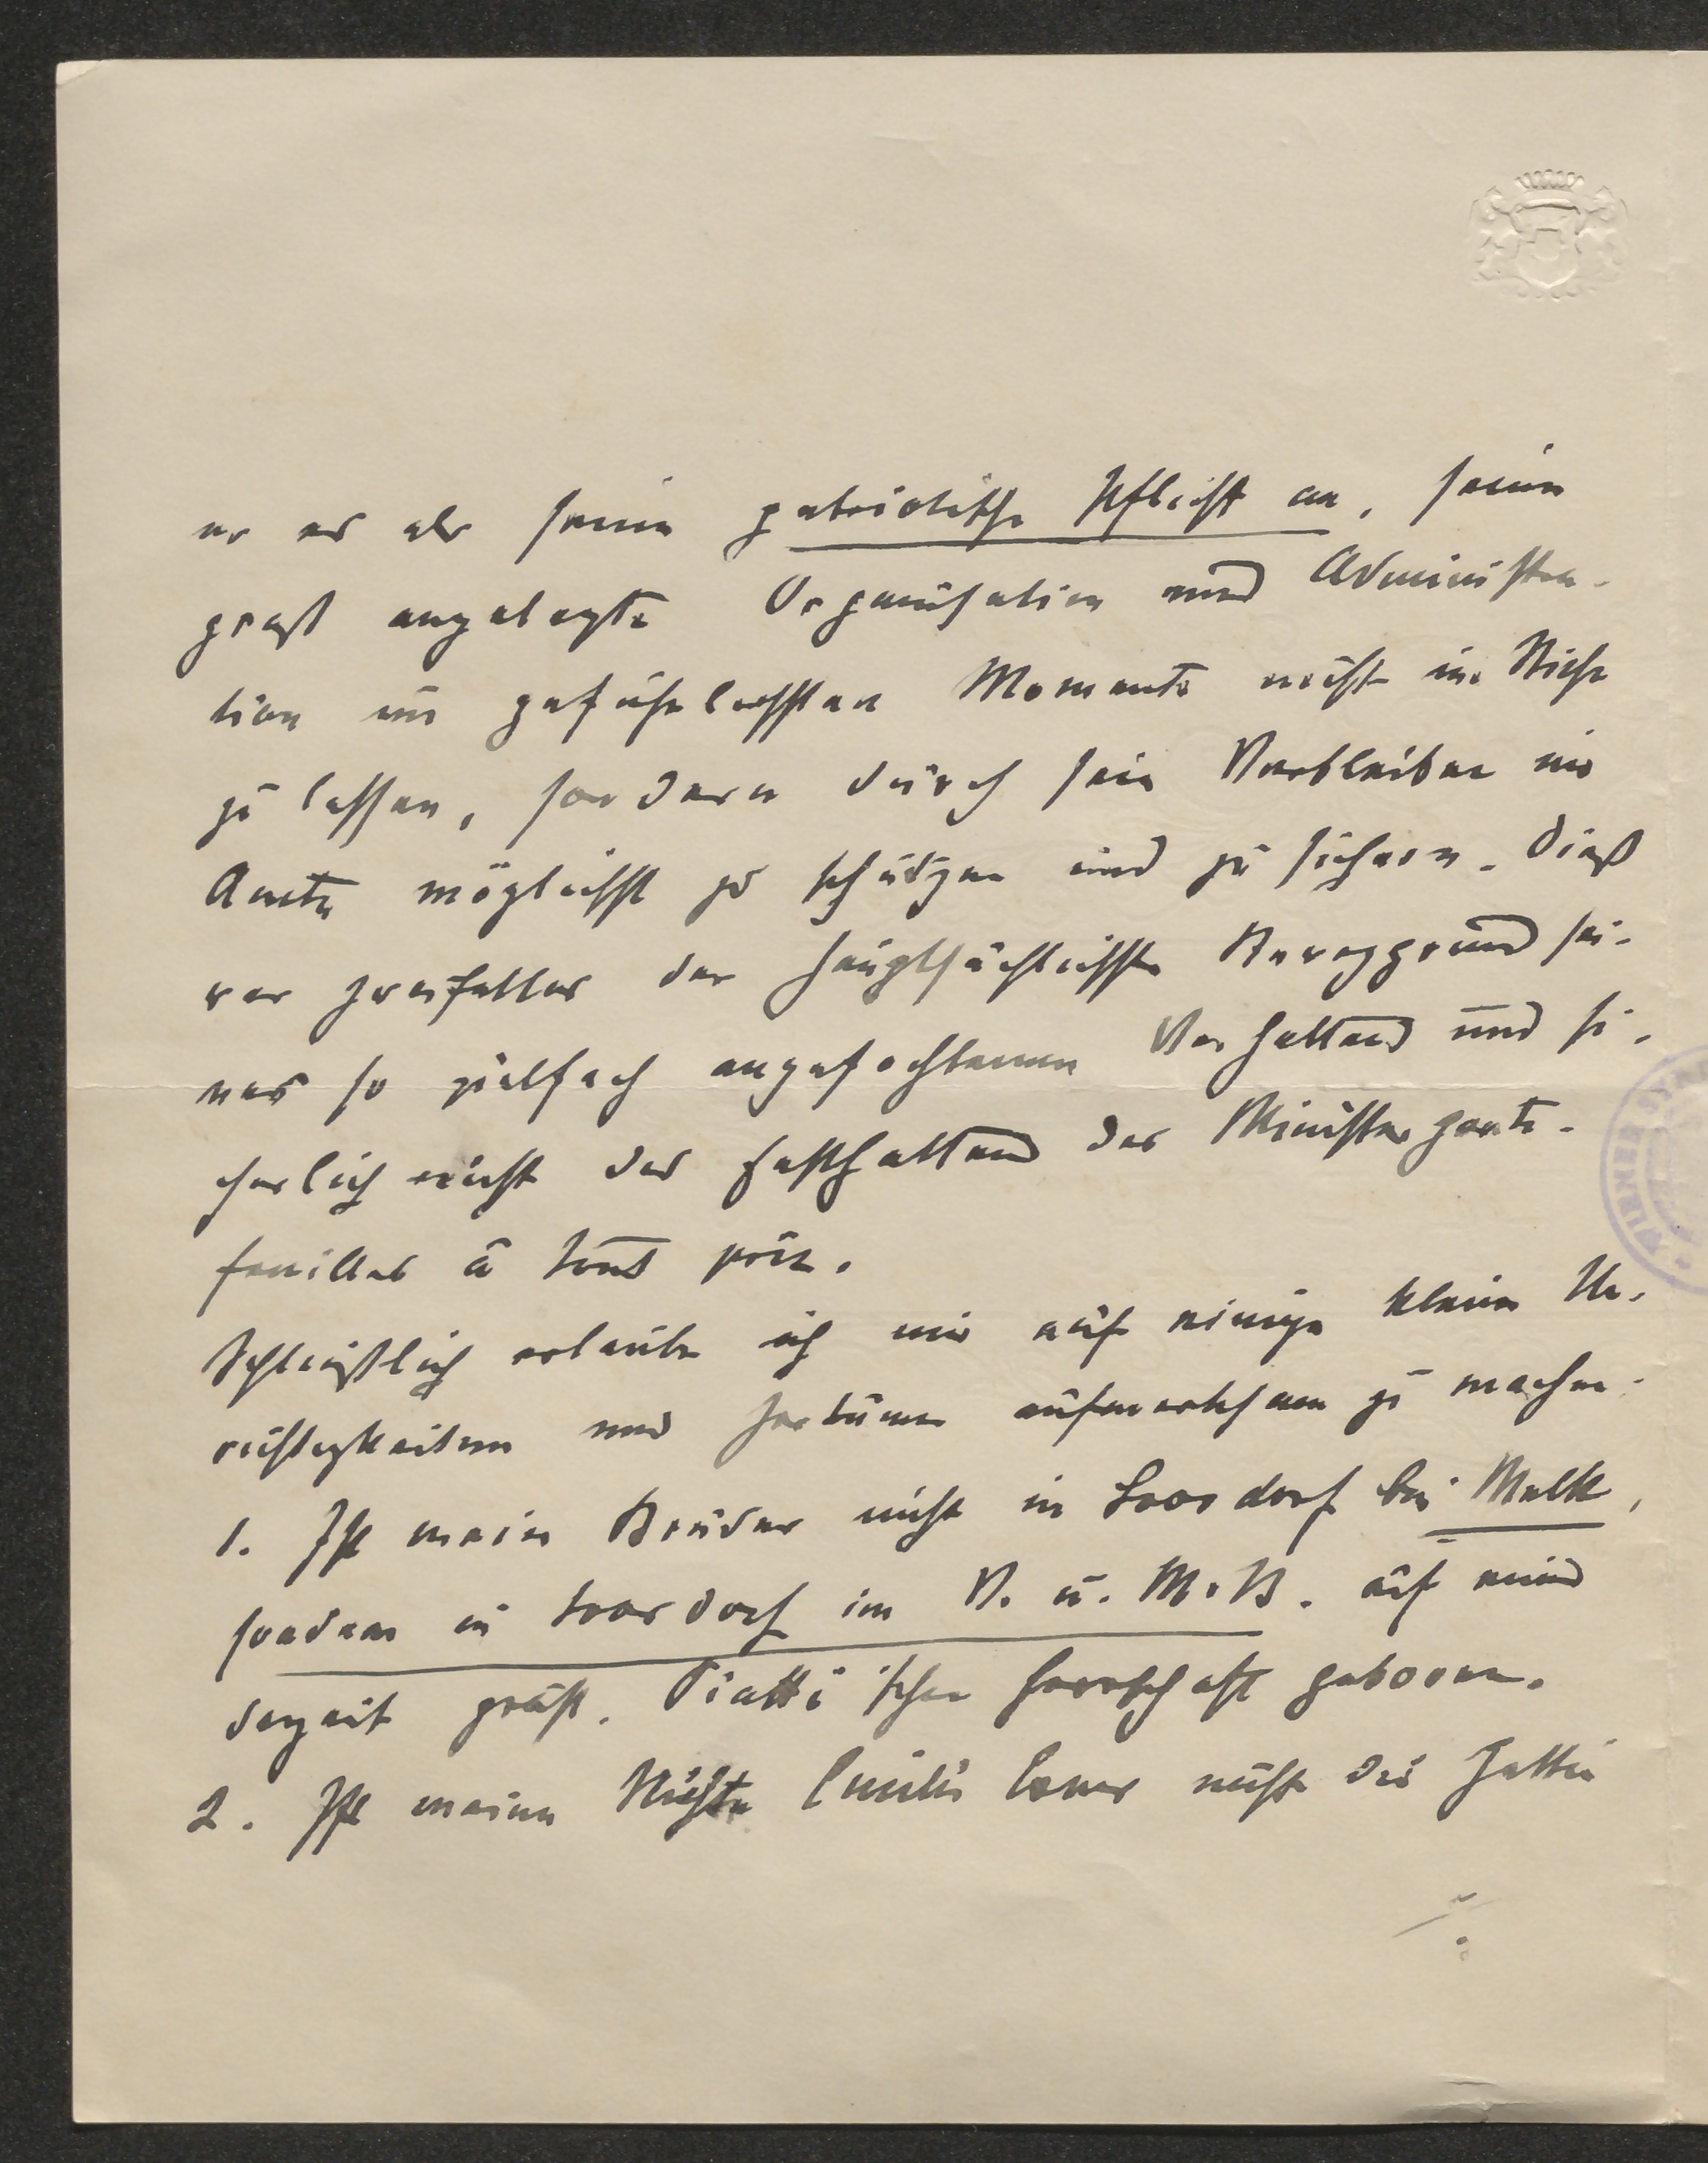 er es als seine patriotische Pflicht an, seine
groß angelegte Organisation und Administra-
tion im gefährlichsten Momente nicht im Stiche
zu lassen, sondern durch sein Verbleiben im
Amte möglichst zu schützen und zu sichern. Dieß
war zweifellos der hauptsächlichste Beweggrund sei-
nes so vielfach angefochtenen Verhaltens und si-
cherlich nicht das Festhalten des Ministerporte-
feuilles à tout prix.
Schließlich erlaube ich mir auf einige kleine Un-
richtigkeiten und Irrtümer aufmerksam zu machen:
1. Ist mein Bruder nicht in Loosdorf bei Melk,
sondern in Loosdorf im V. U. M. B. auf einer
derzeit gräfl. Piatti'schen Herrschaft geboren.
2. Ist meine Nichte Emilie Exner nicht die Gattin
WIENER